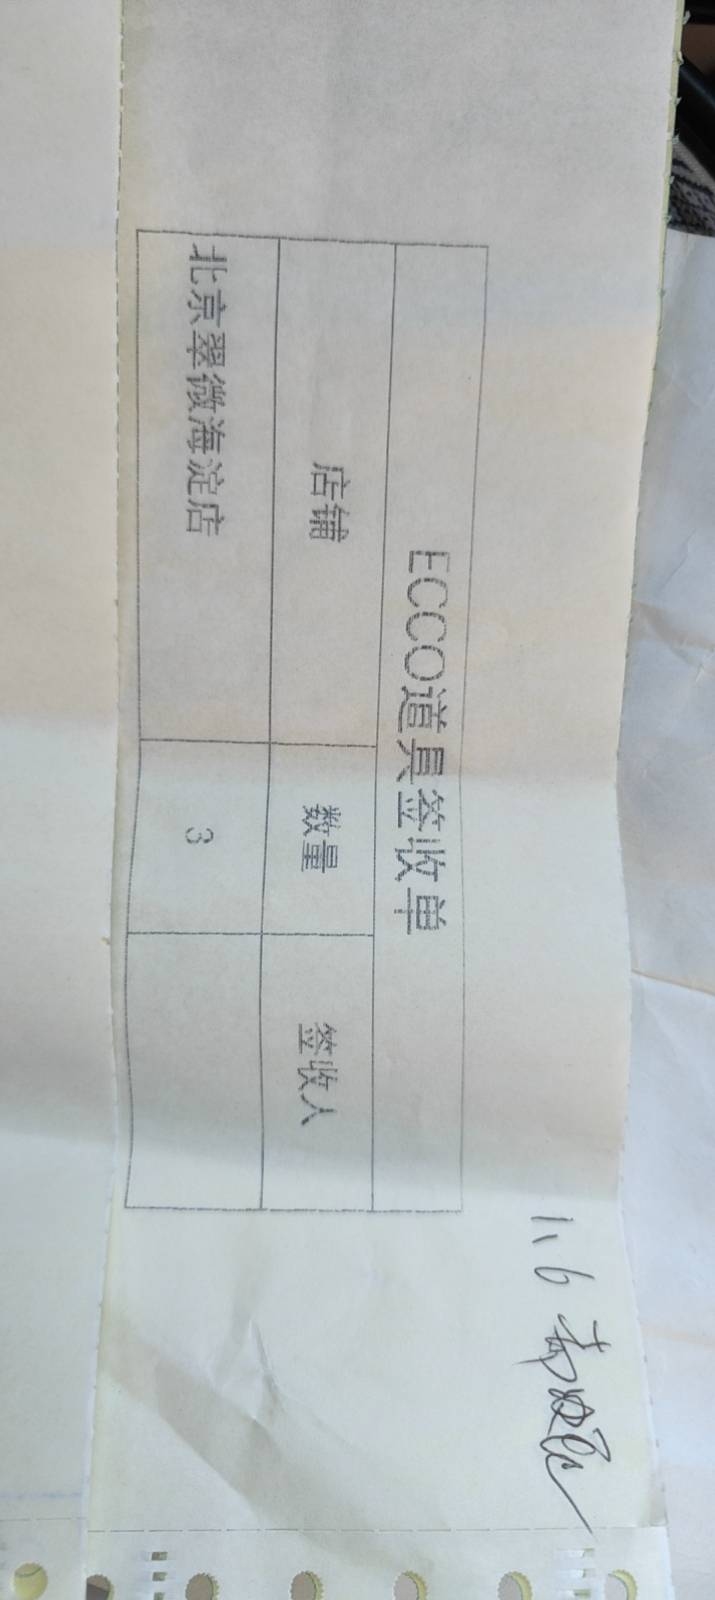 ECCO道具签收单
店铺 数量 签收人
北京翠微海淀店 3
1.6